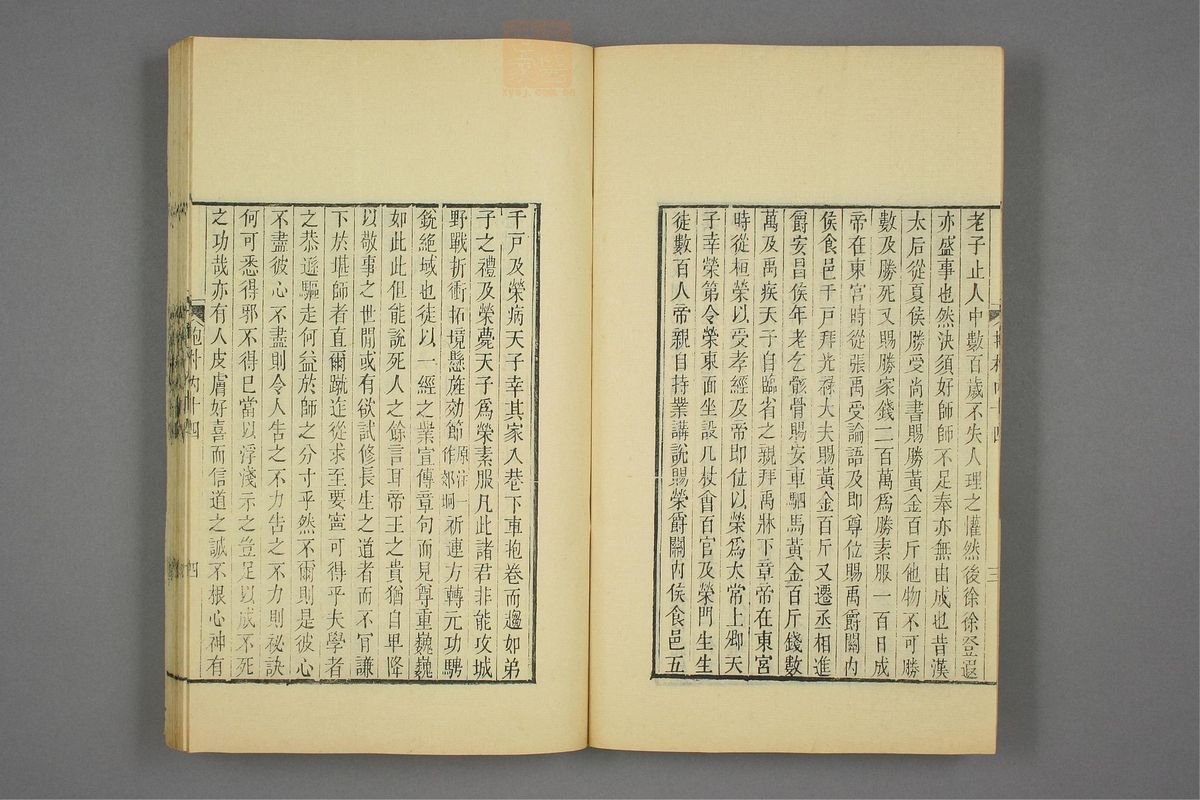 老子止人中數百歲不失人理之懽然後徐徐登遐
亦盛事也然決須好師師不足奉亦無由成也昔漢
太后從夏侯勝受尚書賜勝黃金百斤他物不可勝
數及勝死又賜勝家錢二百萬爲勝素服一百日成
帝在東宮時從張禹受論語及即尊位賜禹爵關內
侯食邑千戶拜光祿大夫賜黃金百斤又遷丞相進
爵安昌侯年老乞骸骨賜安車駟馬黃金百斤錢數
萬及禹疾天子自臨省之親拜禹牀下章帝在東宮
時從桓榮以受孝經及帝即位以榮爲太常上卿天
子幸榮第令榮東面坐設几杖會百官及榮門生生
徒數百人帝親自持業講說賜榮爵關內侯食邑五
三
千戶及榮病天子幸其家入巷下車抱卷而趨如弟
子之禮及榮薨天子爲榮素服凡此諸君非能攻城
野戰折衝拓境懸旌効節原注一作郊祈連方轉元功騁
銳絕域也徒以一經之業宣傳章句而見尊重巍巍
如此此但能說死人之餘言耳帝王之貴猶自卑降
以敬事之世閒或有欲試修長生之道者而不肎謙
下於堪師者直爾蹴迮從求至要寧可得乎夫學者
之恭遜驅走何益於師之分寸乎然不爾則是彼心
不盡彼心不盡則令人告之不力告之不力則秘訣
何可悉得邪不得已當以浮淺示之豈足以成不死
之功哉亦有人皮膚好喜而信道之誠不根心神有
抱朴內十四
四